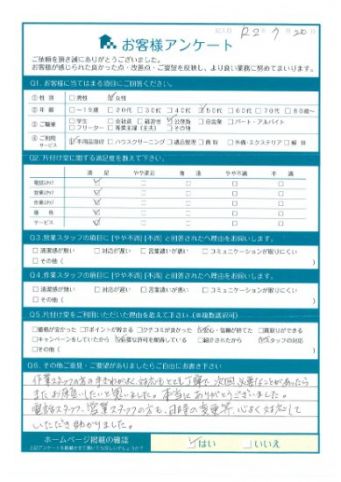 記入日 R2年7月20日
お客様アンケート
ご依頼を頂き誠にありがとうございました。
お客様が感じられた良かった点・改善点・ご要望を反映し、より良い業務に努めてまいります。
Q1. お客様に当てはまる項目にご回答ください。
①性別 □男性 ☑女性
②年齢 □~19歳 □20代 □30代 □40代 ☑50代 □60代 □70代 □80歳~
③ご職業 □学生 □会社員 □経営者 ☑公務員 □自営業 □パート・アルバイト
□フリーター □専業主婦(主夫) □その他
④ご利用サービス ☑不用品回収 □ハウスクリーニング □遺品整理 □買取 □外構・エクステリア □解体
Q2. 片付け堂に関する満足度を教えて下さい。
満足 やや満足 普通 やや不満 不満
電話対応 ☑ □ □ □ □
営業対応 ☑ □ □ □ □
作業対応 ☑ □ □ □ □
価格 ☑ □ □ □ □
サービス ☑ □ □ □ □
Q3.営業スタッフの項目に【やや不満】【不満】と回答された方へ理由をお伺いします。
□清潔感が無い □対応が遅い □言葉遣いが悪い □コミュニケーションが取りにくい
□その他(
Q4.作業スタッフの項目に【やや不満】【不満】と回答された方へ理由をお伺いします。
□清潔感が無い □対応が遅い □言葉遣いが悪い □コミュニケーションが取りにくい
□その他(
Q5.片付け堂をご利用いただいた理由を教えて下さい。(※複数選択可)
□価格が安かった □ポイントが貯まる □クチコミが良かった ☑安心・信頼が持てた □買取りができる
□キャンペーンをしていたから ☑必要な許可を取得している □紹介されたから ☑スタッフの対応
□その他(
Q6. その他ご意見・ご要望がありましたらご自由にお書き下さい
作業スタッフの方の手ぎわが良く、対応もとても丁寧で、次回、必要なことがあったら
またお願いしたいと思いました。本当にありがとうございました。
電話スタッフ、営業スタッフの方も、日時の変更等、心よく対応して
いただき助かりました。
ホームページ掲載の確認
☑はい □いいえ